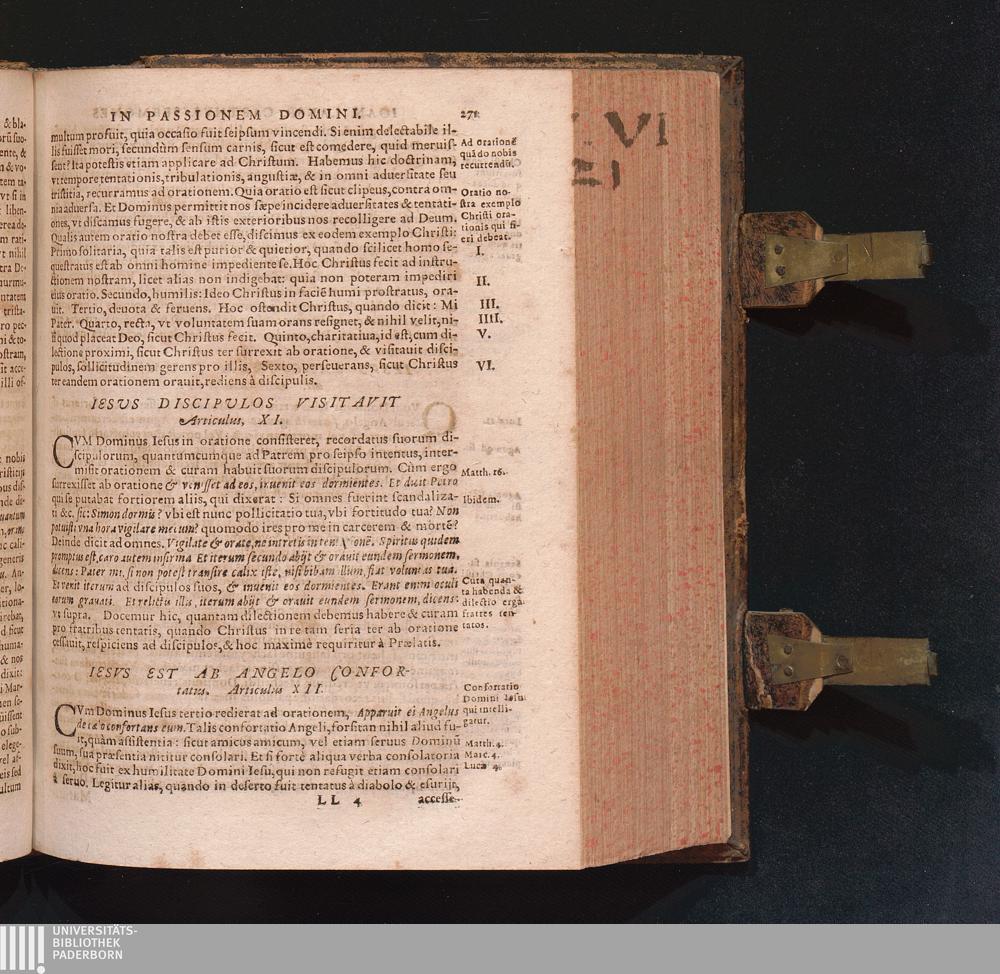 IN PASSIONEM DOMINI. 271
multum profuit, quia occasio fuit seipsum vincendi. Si enim delectabile il-
lis fuisset mori, secundùm sensum carnis, sicut est comedere, quid meruis-
sent? Ita potestis etiam applicare ad Christum. Habemus hic doctrinam,
vt tempore tentationis, tribulationis, angustiæ, & in omni aduersitate seu
tristitia, recurramus ad orationem. Quia oratio est sicut clipeus, contra om-
nia aduersa. Et Dominus permittit nos sæpe incidere aduersitates & tentati-
ones, vt discamus fugere, & ab istis exterioribus nos recolligere ad Deum.
Qualis autem oratio nostra debet esse, discimus ex eodem exemplo Christi:
Primò solitaria, quia talis est purior & quietior, quando scilicet homo se-
questratus est ab omni homine impediente se. Hoc Christus fecit ad instru-
ctionem nostram, licet alias non indigebat: quia non poteram impediri
eius oratio. Secundo, humilis: Ideo Christus in faciē humi prostratus, ora-
uit. Tertio, deuota & feruens. Hoc ostendit Christus, quando dicit: Mi
Pater. Quarto, recta, vt voluntatem suam orans resignet, & nihil velit, ni-
si quod placeat Deo, sicut Christus fecit. Quinto, charitatiua, id est, cum di-
lectione proximi, sicut Christus ter surrexit ab oratione, & visitauit disci-
pulos, sollicitudinem gerens pro illis, Sexto, perseuerans, sicut Christus
ter eandem orationem orauit, rediens à discipulis.
Ad orationē
quādo nobis
recurrendū.
Oratio no-
stra exemplo
Christi ora-
tionis qui fi-
eri debeat.
I.
II.
III.
IIII.
V.
VI.
IESVS DISCIPVLOS VISITAVIT
Articulus, XI.
CVM Dominus Iesus in oratione consisteret, recordatus suorum di-
scipulorum, quantumcumque ad Patrem pro seipso intentus, inter-
misit orationem & curam habuit suorum discipulorum. Cùm ergo
surrexisset ab oratione & venisset ad eos, inuenit eos dormientes. Et dicit Petro
qui se putabat fortiorem aliis, qui dixerat: Si omnes fuerint scandaliza-
ti &c. sic: Simon dormis? vbi est nunc pollicitatio tua, vbi fortitudo tua? Non
potuisti vna hora vigilare mecum? quomodo ires pro me in carcerem & mortē?
Deinde dicit ad omnes. Vigilate & orate, ne intretis in tentationē. Spiritus quidem
promptus est, caro autem infirma. Et iterum secundo abijt & orauit eundem sermonem,
dicens: Pater mi, si non potest transire calix iste, nisi bibam illum, fiat voluntas tua.
Et venit iterum ad discipulos suos, & inuenit eos dormientes. Erant enim oculi
eorum grauati. Et relictis illis, iterum abijt & orauit eundem sermonem, dicens:
vt supra. Docemur hic, quantam dilectionem debemus habere & curam
pro fratribus tentatis, quando Christus in re tam seria ter ab oratione
cessauit, respiciens ad discipulos, & hoc maximè requiritur à Prælatis.
Matth. 26.
Ibidem.
Cura quan-
ta habenda &
dilectio erga
fratres ten-
tatos.
IESVS EST AB ANGELO CONFOR-
tatus. Articulus XII.
CVm Dominus Iesus tertio redierat ad orationem, Apparuit ei Angelus
de cælo confortans eum. Talis confortatio Angeli, forsitan nihil aliud fu-
it, quàm assistentia: sicut amicus amicum, vel etiam seruus Dominū
suum, sua præsentia nititur consolari. Et si forte aliqua verba consolatoria
dixit, hoc fuit ex humilitate Domini Iesu, qui non refugit etiam consolari
à seruo. Legitur alias, quando in deserto fuit tentatus à diabolo & esurijt,
Confortatio
Domini Iesu
qui intelli-
gatur.
Matth. 4.
Marc. 4.
Luca 4.
LL 4 accesse-
VI
UNIVERSITÄTS-
BIBLIOTHEK
PADERBORN